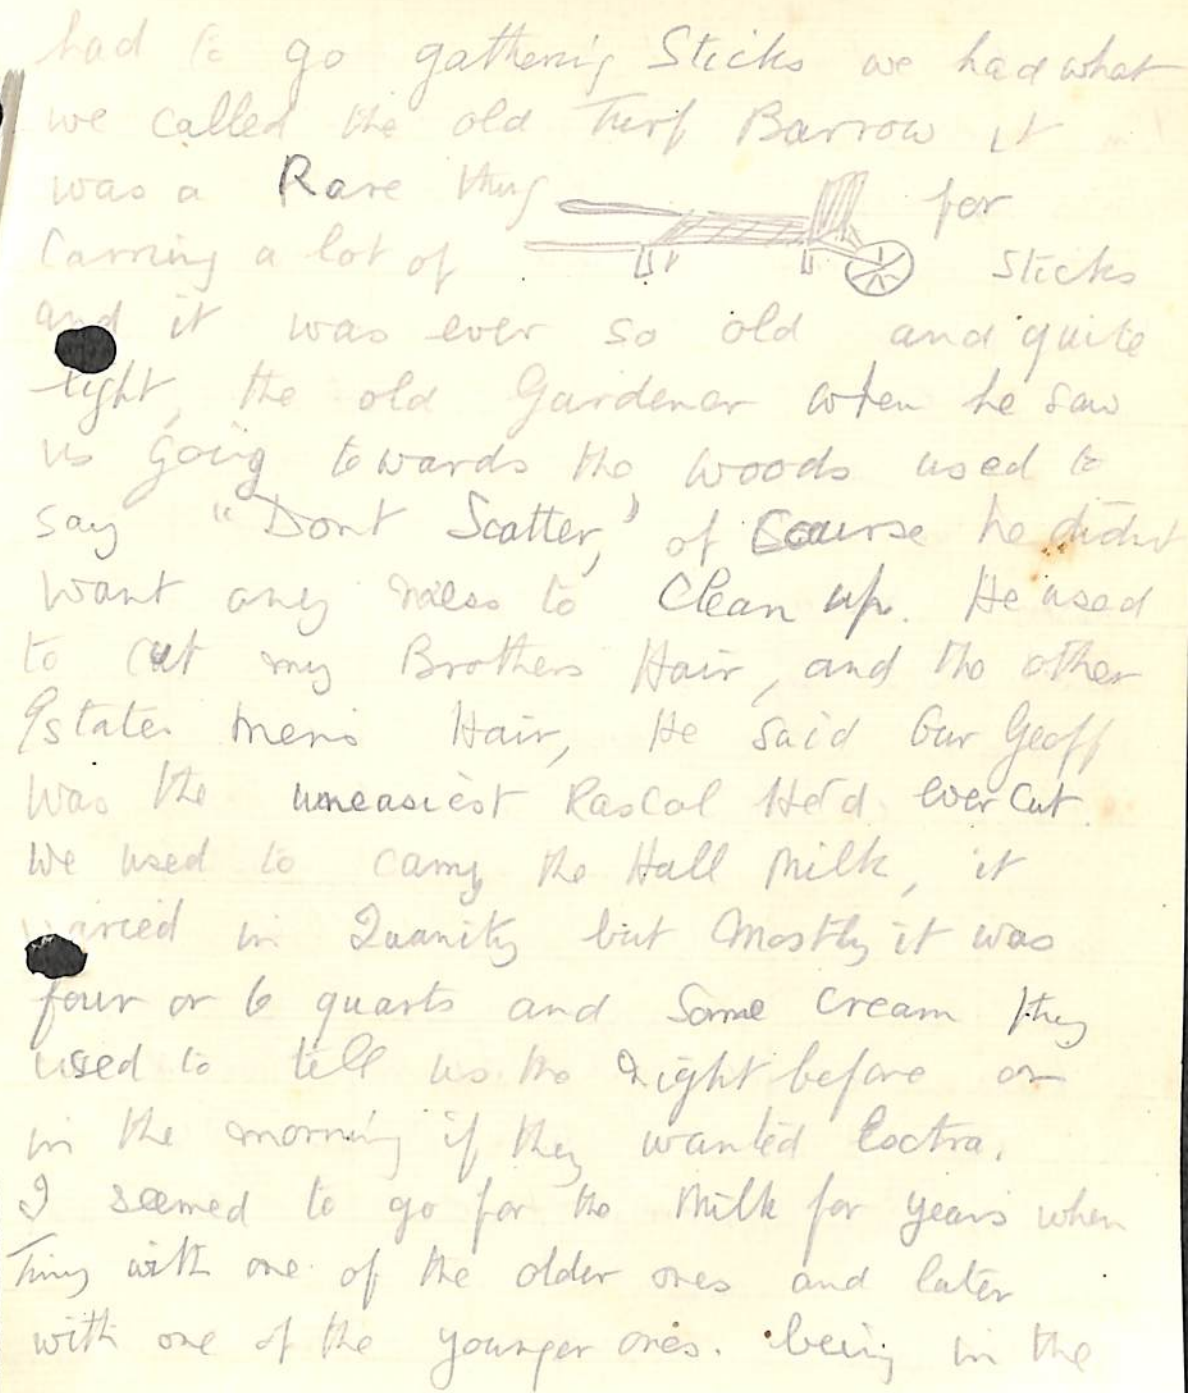 had to go gathering Sticks we had what
we called the old Turf Barrow it
was a Rare thing for
Carrying a lot of Sticks
and it was ever so old and quite
light, the old Gardener when he saw
us going towards the woods used to
say "Dont Scatter," of Course he didnt
want any mess to Clean up. He used
to cut my Brothers Hair, and the other
Estate mens Hair, He said Our Geoff
was the uneasiest Rascal He'd ever Cut.
We used to carry the Hall Milk, it
varied in Quanity but Mostly it was
four or 6 quarts and Some Cream they
used to tell us the Night before or
in the morning if they wanted Exctra.
I seemed to go for the Milk for years when
Tiny with one of the older ones and later
with one of the younger ones. being in the